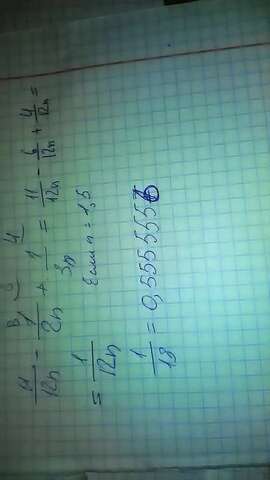 6 4
11/12n - 1/2n + 1/3n = 11/12n - 6/12n + 4/12n =
= 1/12n Если n = 1,5
1/18 = 0,55555556